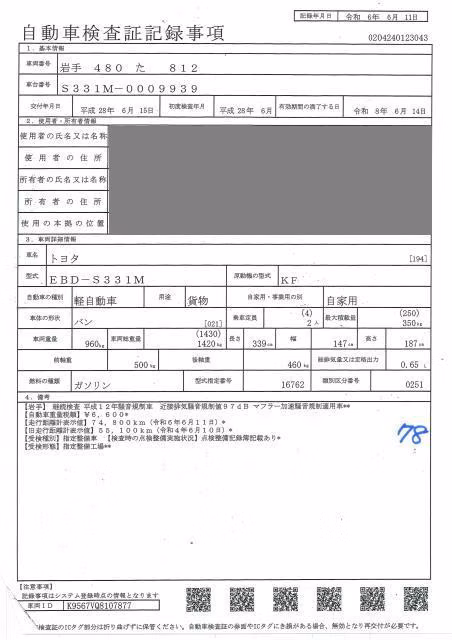 記録年月日 令和 6年 6月 11日
自動車検査証記録事項 0204240123043
1. 基本情報
車両番号 岩手 480 た 812
車台番号 S331M-0009939
交付年月日 平成 28年 6月 15日 初度検査年月 平成 28年 6月 有効期間の満了する日 令和 8年 6月 14日
2. 使用者・所有者情報
使用者の氏名又は名称
使用者の住所
所有者の氏名又は名称
所有者の住所
使用の本拠の位置
3. 車両詳細情報
車名 トヨタ [194]
型式 EBD-S331M 原動機の型式 KF
自動車の種別 軽自動車 用途 貨物 自家用・事業用の別 自家用
車体の形状 バン [021] 乗車定員 (4) 2人 最大積載量 (250) 350kg
車両重量 960kg 車両総重量 (1430) 1420kg 長さ 339cm 幅 147cm 高さ 187cm
前軸重 500kg 後軸重 460kg 総排気量又は定格出力 0.65 L
燃料の種類 ガソリン 型式指定番号 16762 類別区分番号 0251
4. 備考
【岩手】 継続検査 平成12年騒音規制車 近接排気騒音規制値97dB マフラー加速騒音規制適用車**
【自動車重量税額】¥6,600*
【走行距離計表示値】74,800km(令和6年6月11日)*
【旧走行距離計表示値】55,100km(令和4年6月10日)*
【受検種別】指定整備車 【検査時の点検整備実施状況】点検整備記録簿記載あり*
【受検形態】指定整備工場**
78
【注意事項】
記録事項はシステム登録時点の情報となります
車両ID K9567VQ8107877
検査証のICタグ部分は折り曲げずに保管ください。自動車検査証の券面やICタグにき損がある場合、無効となり再交付が必要です。